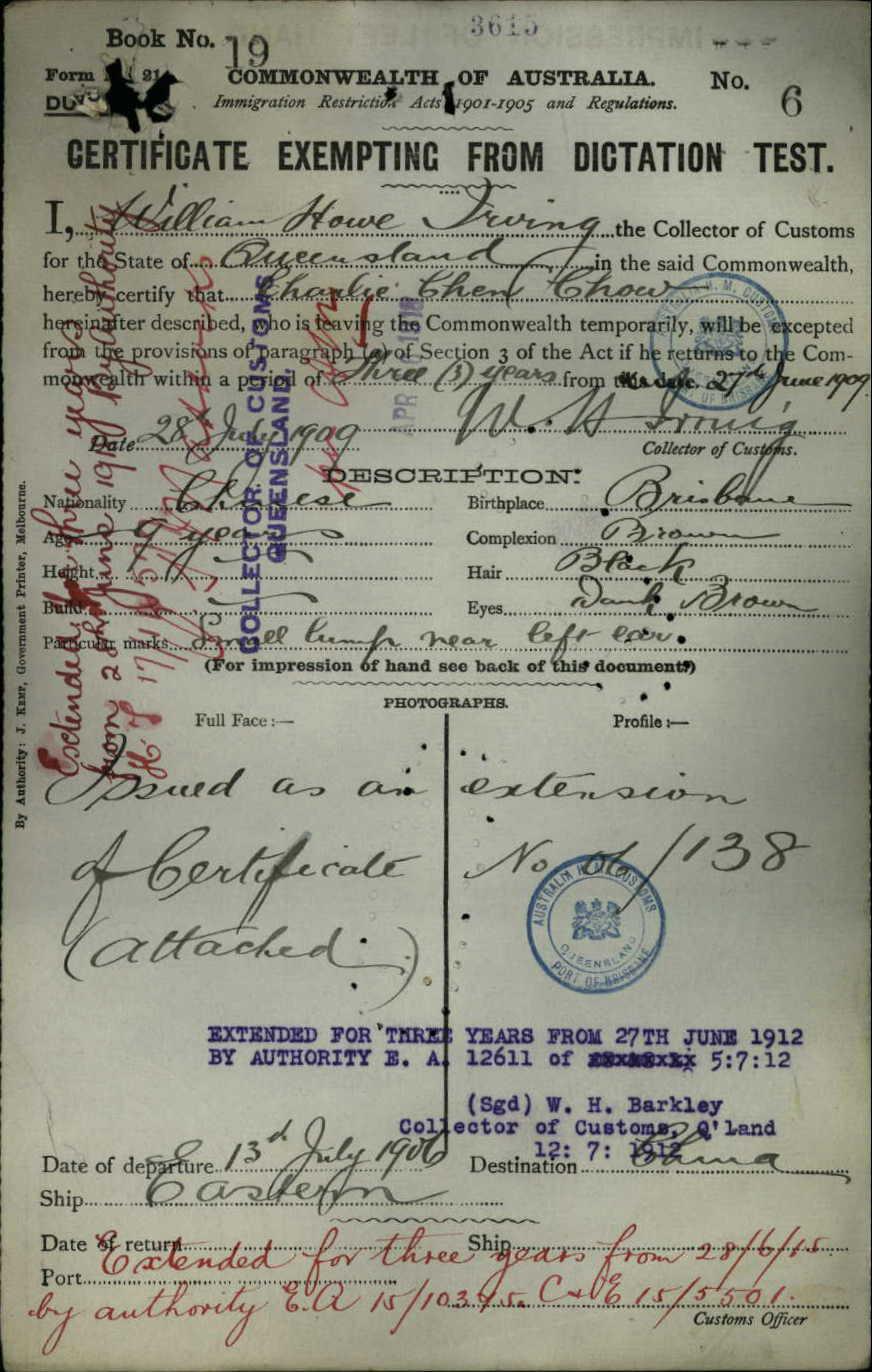 3615
Book No. 19
Form 21
COMMONWEALTH OF AUSTRALIA. No. 6
Immigration Restriction Acts 1901-1905 and Regulations.
CERTIFICATE EXEMPTING FROM DICTATION TEST.
I, William Howe Irving the Collector of Customs
for the State of Queensland in the said Commonwealth,
hereby certify that Charlie Chen Chow
hereinafter described, who is leaving the Commonwealth temporarily, will be excepted
from the provisions of paragraph (a) of Section 3 of the Act if he returns to the Com-
monwealth within a period of Three (3) years from 27th June 1909
W. H. Irving
Date 28th July 1909 Collector of Customs.
DESCRIPTION.
Nationality Chinese Birthplace Brisbane
Age 9 years Complexion Brown
Height Hair Black
Build Eyes Dark Brown
Particular marks Small lump near left ear.
(For impression of hand see back of this document.)
PHOTOGRAPHS.
Full Face :— Profile :—
Issued as an extension
of Certificate No 06/138
(attached.)
COLLECTOR OF CUSTOMS
QUEENSLAND.
APR
Extended for three years
from 28th June 191
By Authority: J. Kemp, Government Printer, Melbourne.
AUSTRALIA H.M. CUSTOMS
QUEENSLAND
PORT OF BRISBANE
EXTENDED FOR THREE YEARS FROM 27TH JUNE 1912
BY AUTHORITY E. A. 12611 of 5:7:12
(Sgd) W. H. Barkley
Collector of Customs, Q'land
12: 7: 1912
Date of departure 13d July 1906 Destination China
Ship Eastern
Date of return Ship
Extended for three years from 28/6/15.
Port
by authority E.A 15/10375. C+E 15/5501.
Customs Officer